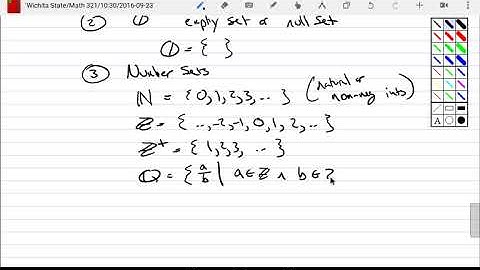 Wichita State/Math 321/10:30/2016-09-23
② ∅ empty set or null set
∅ = { }
③ Number Sets
ℕ = {0, 1, 2, 3, ... } (natural or non-neg ints)
ℤ = { ..., -2, -1, 0, 1, 2, ... }
ℤ⁺ = { 1, 2, 3, ... }
ℚ = { a/b | a ∈ ℤ ∧ b ∈ ℤ
A